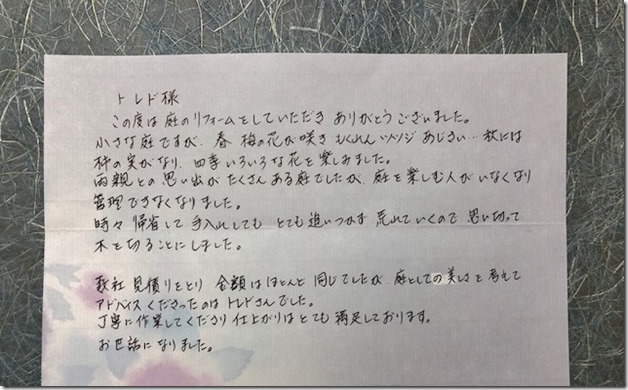 トレド様
この度は庭のリフォームをしていただき ありがとうございました。
小さな庭ですが、春 梅の花が咲き もくれん ツツジ あじさい… 秋には
柿の実がなり、四季いろいろな花を楽しみました。
両親との思い出がたくさんある庭でしたが、庭を楽しむ人がいなくなり
管理できなくなりました。
時々帰省して手入れしても とても追いつかず 荒れていくので 思い切って
木を切ることにしました。
数社見積りをとり 金額はほとんど同じでしたが、庭としての美しさを考えて
アドバイスくださったのはトレドさんでした。
丁寧に作業してくださり 仕上がりはとても満足しております。
お世話になりました。